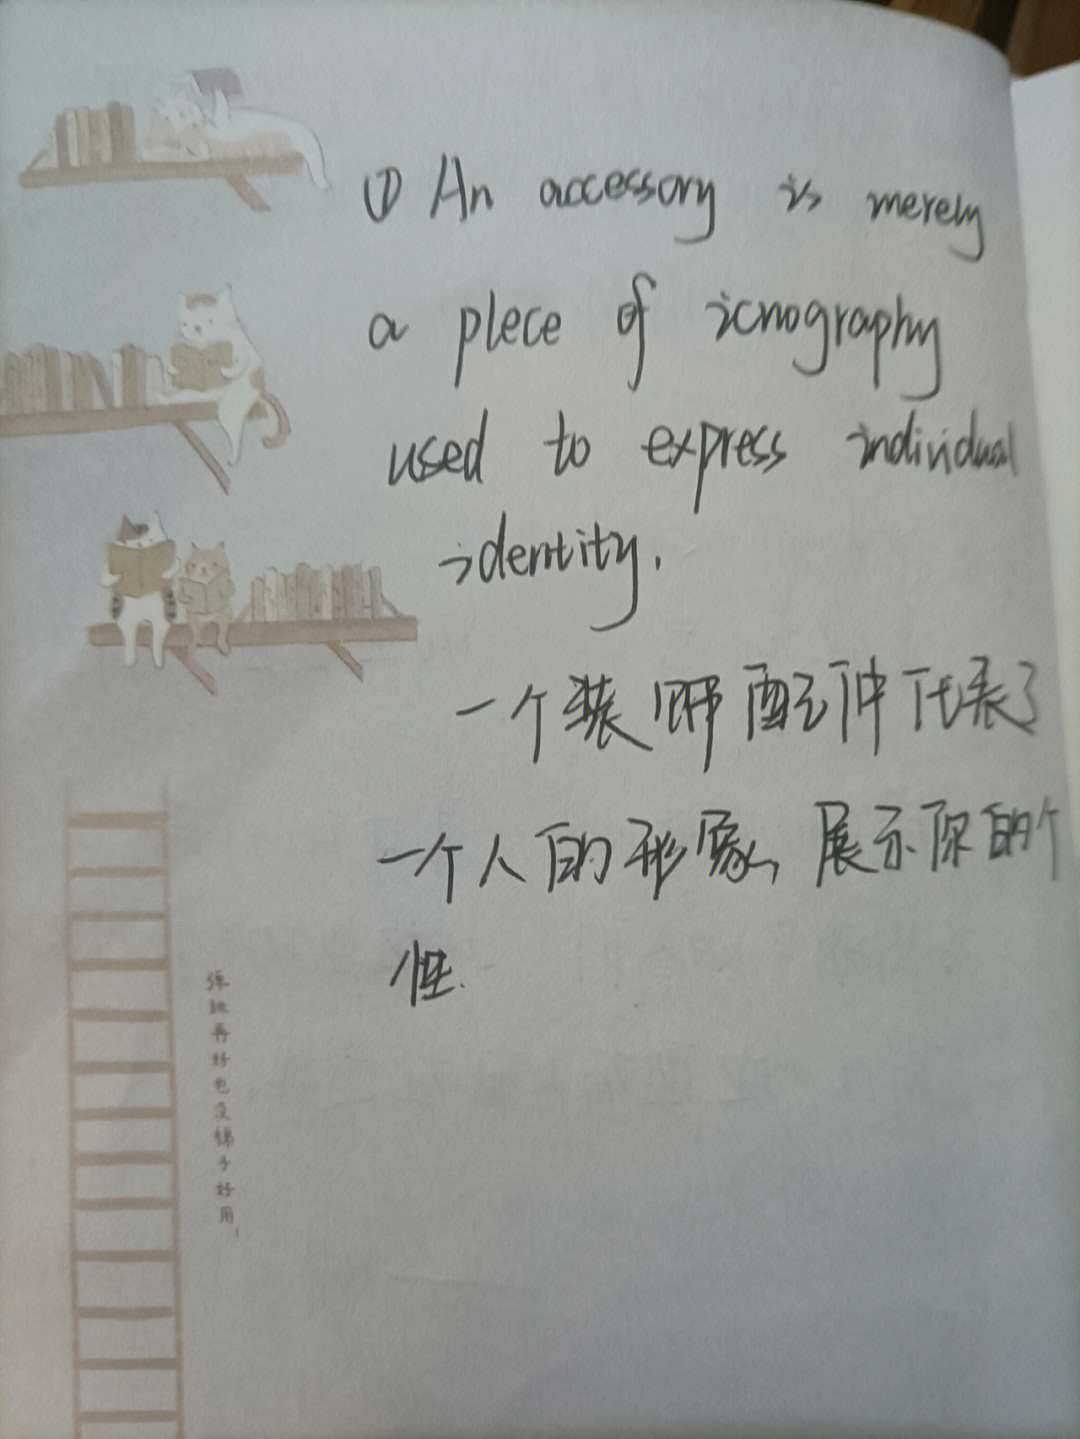 ① An accessory is merely
a plece of icnography
used to express individual
identity.
一个装饰配件代表了
一个人的形象，展示你的个
性.
弹跳再好也没梯子好用！